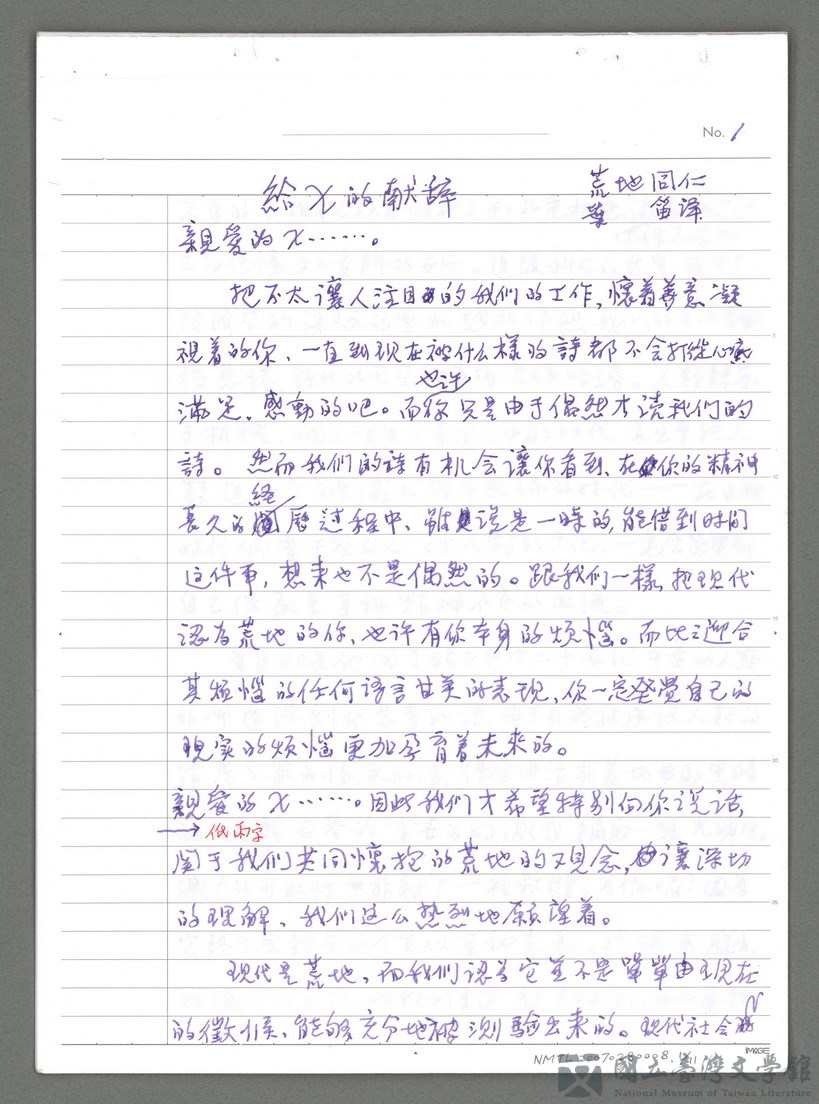 No. 1
給X的献辞
荒地同仁
葉 笛译
親爱的X……。
把不太讓人注目的我们的工作,懷着善意凝
視着的你、一直到现在被什么樣的詩都不会打從心底
也许
满足、感動的吧。而你只是由于偶然才读我们的
詩。然而我们的诗有机会讓你看到、在你的精神
経
長久的历过程中、雖说是一時的,能借到时间
这件事,想来也不是偶然的。跟我们一樣,把现代
認为荒地的你,也许有你本身的烦惱。而比之迎合
其烦惱的任何语言甘美的表现,你一定發覺自己的
现实的烦惱更加孕育着未来的。
親爱的X……。因此我们才希望特别向你说话,
低兩字
関于我们共同懷抱的荒地的观念,讓深切
的理解、我们这么热烈地願望着。
现代是荒地,而我们認为它並不是單單由现在
的徵候、能够充分地被测驗出来的。现代社会
IMAGE
NMTL20070380008
國立臺灣文學館
National Museum of Taiwan Literature